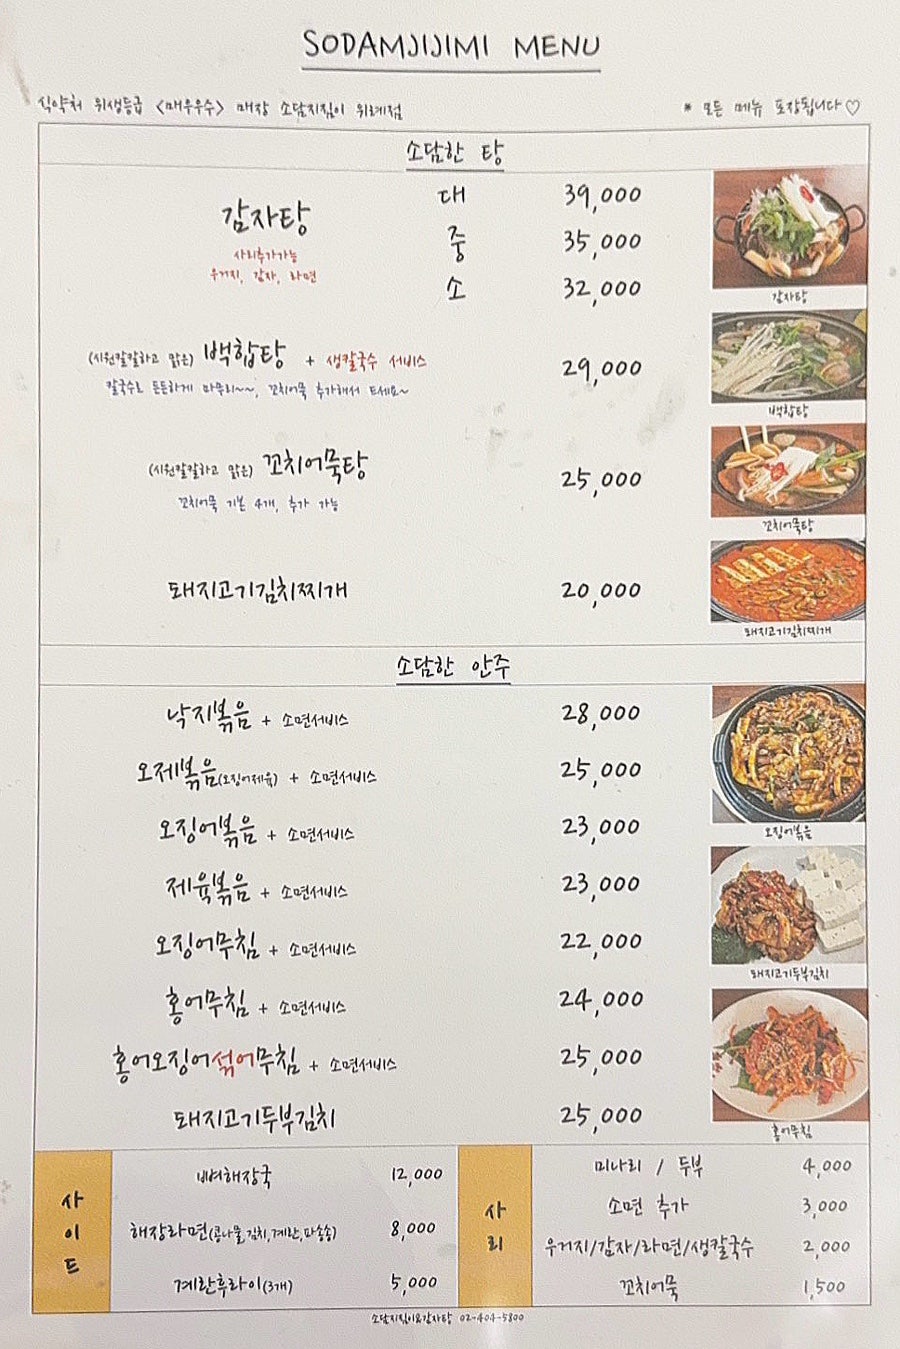 SODAMJIJIMI MENU
식약처 위생등급 <매우우수> 매장 소담지짐이 위례점
* 모든 메뉴 포장됩니다♡
소담한 탕
감자탕
사리추가가능
우거지, 감자, 라면
대 39,000
중 35,000
소 32,000
감자탕
(시원칼칼하고 맑은) 백합탕 + 생칼국수 서비스 29,000
칼국수로 든든하게 마무리~~, 꼬치어묵 추가해서 드세요~
백합탕
(시원칼칼하고 맑은) 꼬치어묵탕 25,000
꼬치어묵 기본 4개, 추가 가능
꼬치어묵탕
돼지고기김치찌개 20,000
돼지고기김치찌개
소담한 안주
낙지볶음 + 소면서비스 28,000
오제볶음(오징어제육) + 소면서비스 25,000
오징어볶음 + 소면서비스 23,000
오징어볶음
제육볶음 + 소면서비스 23,000
오징어무침 + 소면서비스 22,000
돼지고기두부김치
홍어무침 + 소면서비스 24,000
홍어오징어섞어무침 + 소면서비스 25,000
돼지고기두부김치 25,000
홍어무침
사이드
뼈해장국 12,000
해장라면(콩나물,김치,계란,파송송) 8,000
계란후라이(3개) 5,000
사리
미나리 / 두부 4,000
소면 추가 3,000
우거지/감자/라면/생칼국수 2,000
꼬치어묵 1,500
소담지짐이&감자탕 02-404-5800